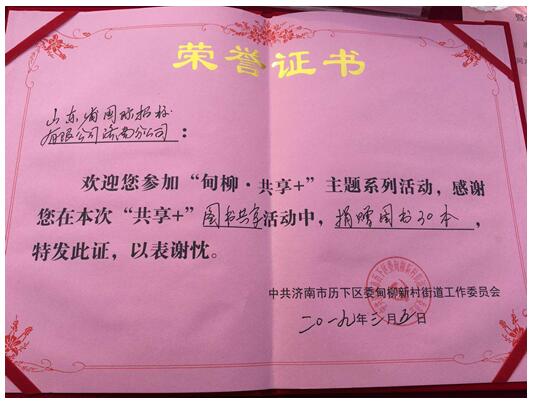 荣誉证书
山东省国际招标
有限公司济南分公司：
欢迎您参加“甸柳·共享+”主题系列活动，感谢
您在本次“共享+”图书共享活动中，捐赠图书30本，
特发此证，以表谢忱。
中共济南市历下区委甸柳新村街道工作委员会
二〇一九年三月五日